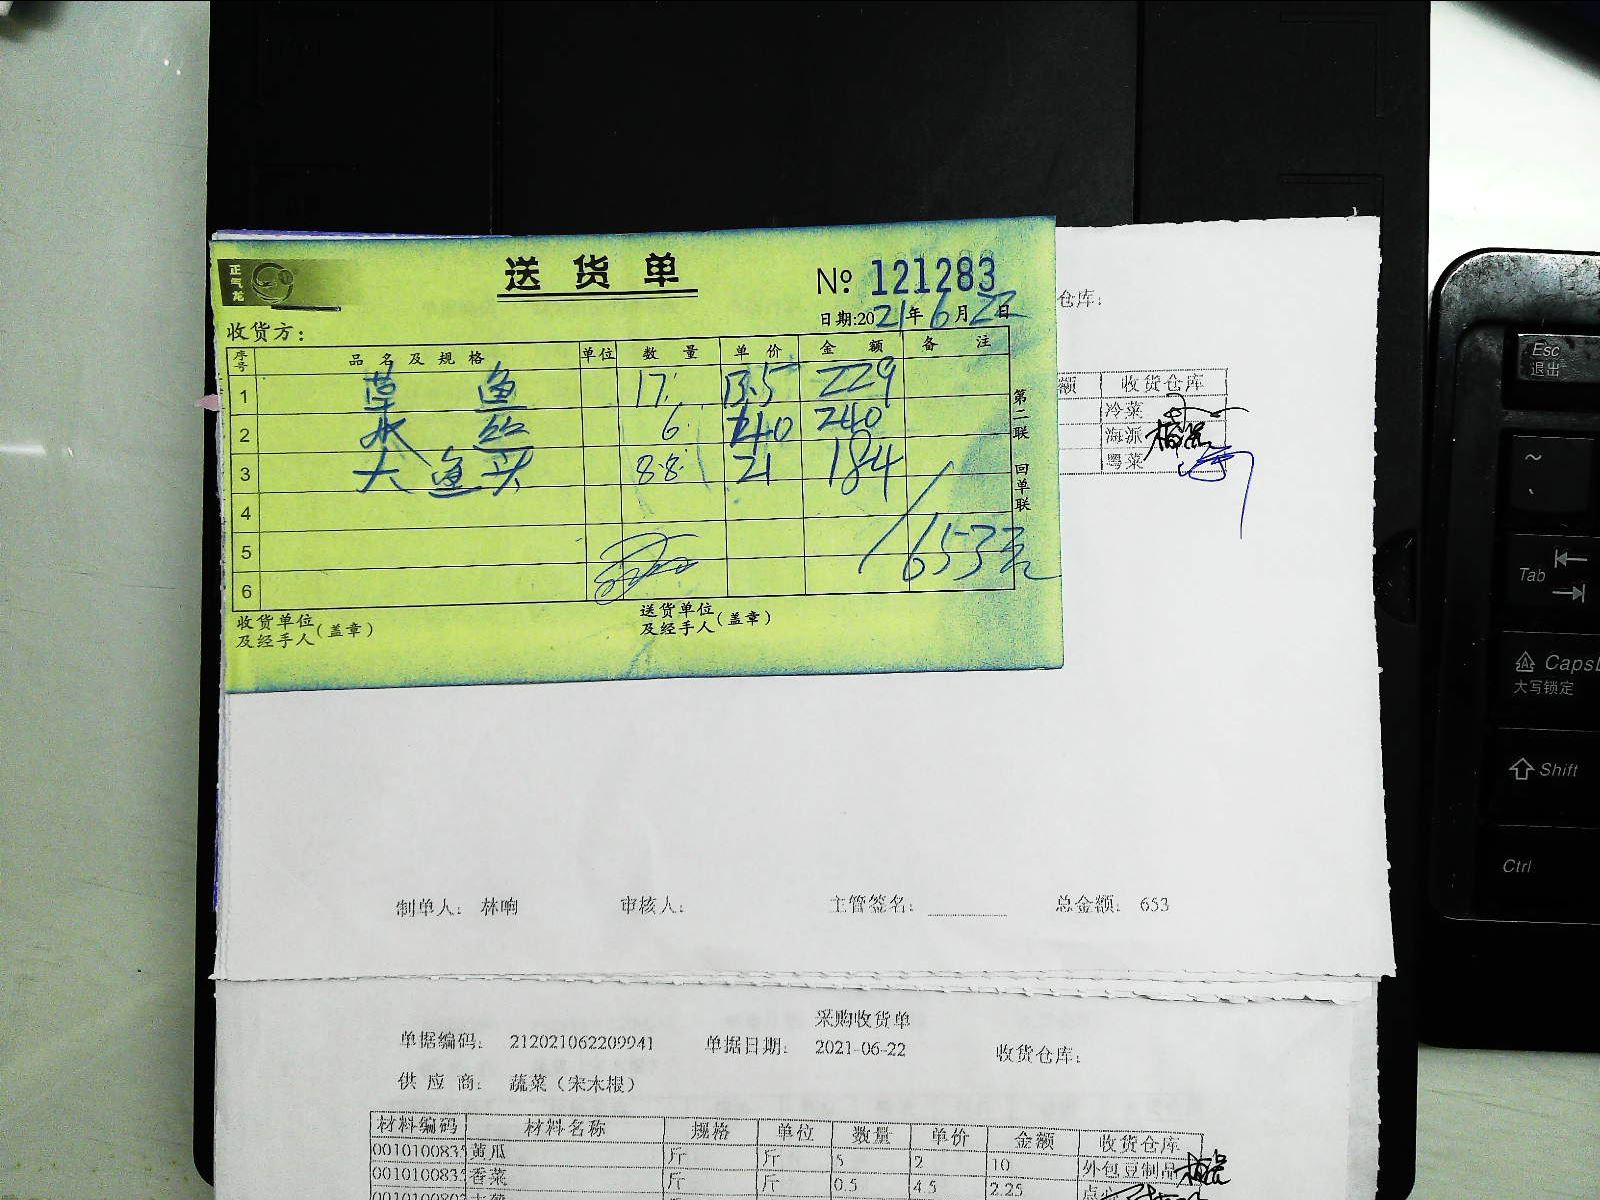 正气龙
送货单
№ 121283
日期:2021年6月22日
收货方:
序号 品名及规格 单位 数量 单价 金额 备注
1 草鱼 17 13.5 229
2 水 6 40 240
3 大鱼头 8.8 21 184
4
5
6
653元
第二联 回单联
收货单位及经手人(盖章)
送货单位及经手人(盖章)
仓库:
额 收货仓库
冷菜
海派
粤菜
制单人: 林响 审核人: 主管签名: 总金额: 653
采购收货单
单据编码: 212021062209941 单据日期: 2021-06-22 收货仓库:
供应商: 蔬菜(宋木根)
材料编码 材料名称 规格 单位 数量 单价 金额 收货仓库
001010083 黄瓜 斤 斤 5 2 10 外包豆制品
001010083 香菜 斤 斤 0.5 4.5 2.25 点
Esc
退出
~
Tab
Caps
大写锁定
Shift
Ctrl